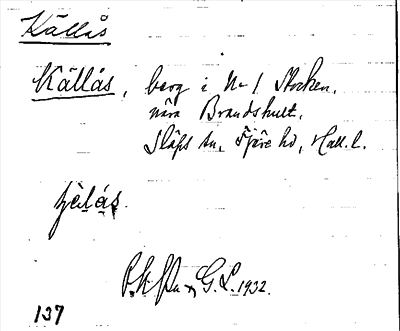 Källås
Källås, berg i N:r 1 Stocken,
nära Brandshult.
Släps sn, Fjäre hd, Hall. l.
G. L. 1932.
137